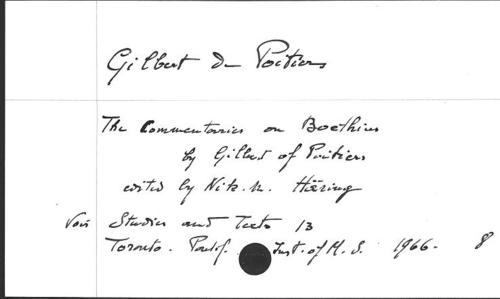 Gilbert de Poitiers
The Commentaries on Boethius
by Gilbert of Poitiers
edited by Nik. M. Häring
Voir Studies and Texts 13
Toronto. Pontif. Inst. of M. S. 1966. 8